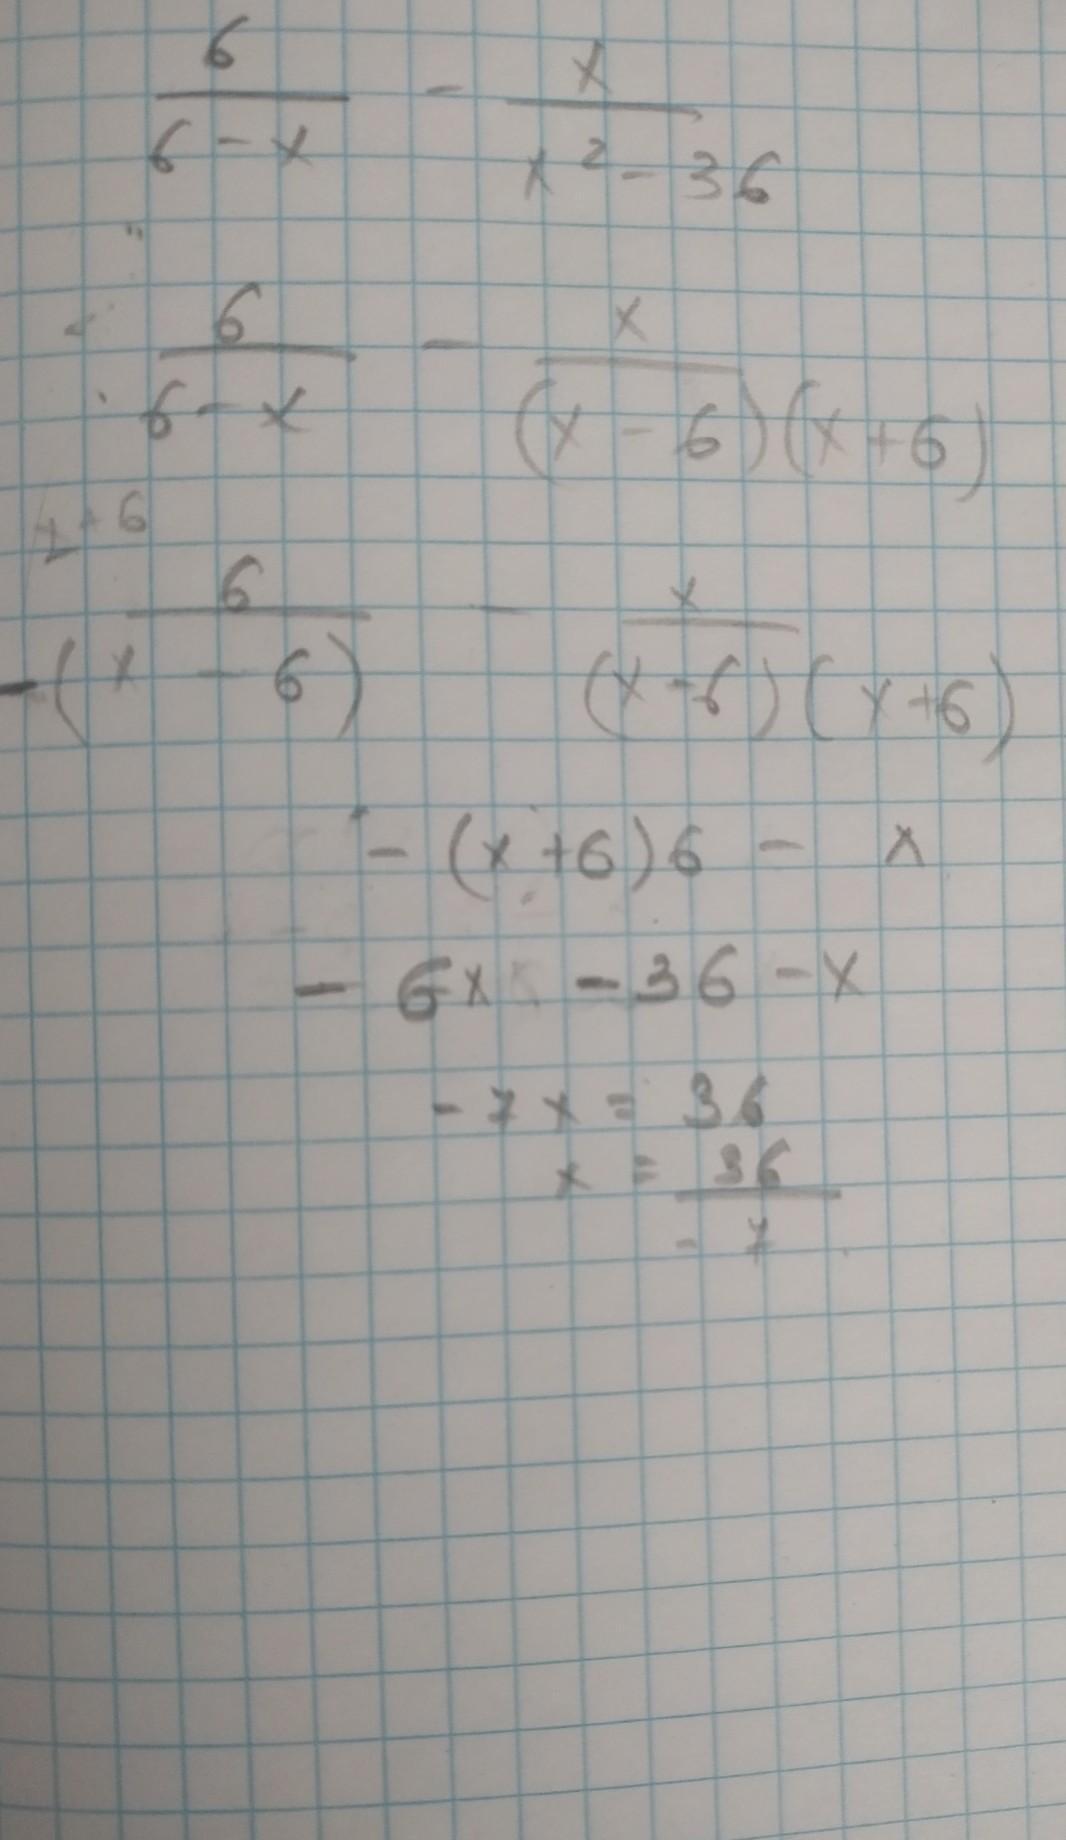 6/(6 - x) - x/(x² - 36)
6/(6 - x) - x/((x - 6)(x + 6))
x + 6
6/(-(x - 6)) - x/((x - 6)(x + 6))
- (x + 6)6 - x
- 6x - 36 - x
- 7x = 36
x = 36/(- 7)